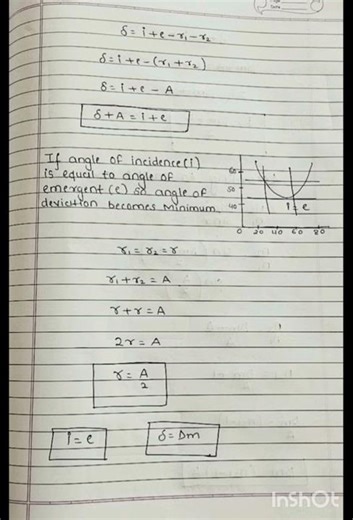 δ = i + e - r₁ - r₂
δ = i + e - (r₁ + r₂)
δ = i + e - A
δ + A = i + e
If angle of incidence (i)
is equal to angle of
emergent (e) so angle of
deviation becomes Minimum
60
50
40
i = e
0 20 40 60 80
r₁ = r₂ = r
r₁ + r₂ = A
r + r = A
2r = A
r = A/2
i = e
δ = Dm
InShOt